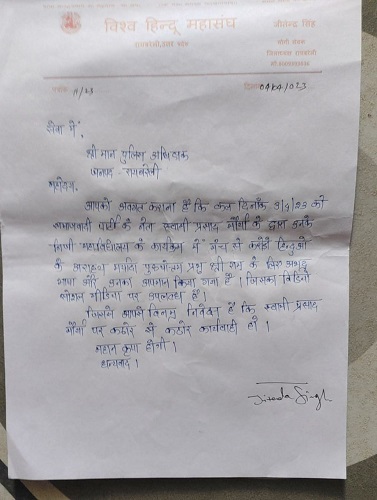 विश्व हिन्दू महासंघ
रायबरेली, उत्तर प्रदेश
जीतेन्द्र सिंह
11/23
दिनांक 04/04/023
सेवा में,
श्री मान पुलिस अधिक्षक
जनपद - रायबरेली
महोदय,
आपको अवगत कराना है कि कल दिनांक 3/4/23 को
समाजवादी पार्टी के नेता स्वामी प्रसाद मौर्या के द्वारा उनके
निजी महाविद्यालय के कार्यक्रम में मंच से करोडो हिन्दुओ
के आराध्य मर्यादा पुरुषोत्तम प्रभु श्री राम के लिए अभद्र
भाषा और उनका अपमान किया गया है। जिसका विडियो
सोशल मीडिया पर उपलब्ध है।
जिसमें आपसे विनम्र निवेदन है कि स्वामी प्रसाद
मौर्या पर कठोर से कठोर कार्यवाही हो।
महान कृपा होगी।
धन्यवाद।
Jitendra Singh